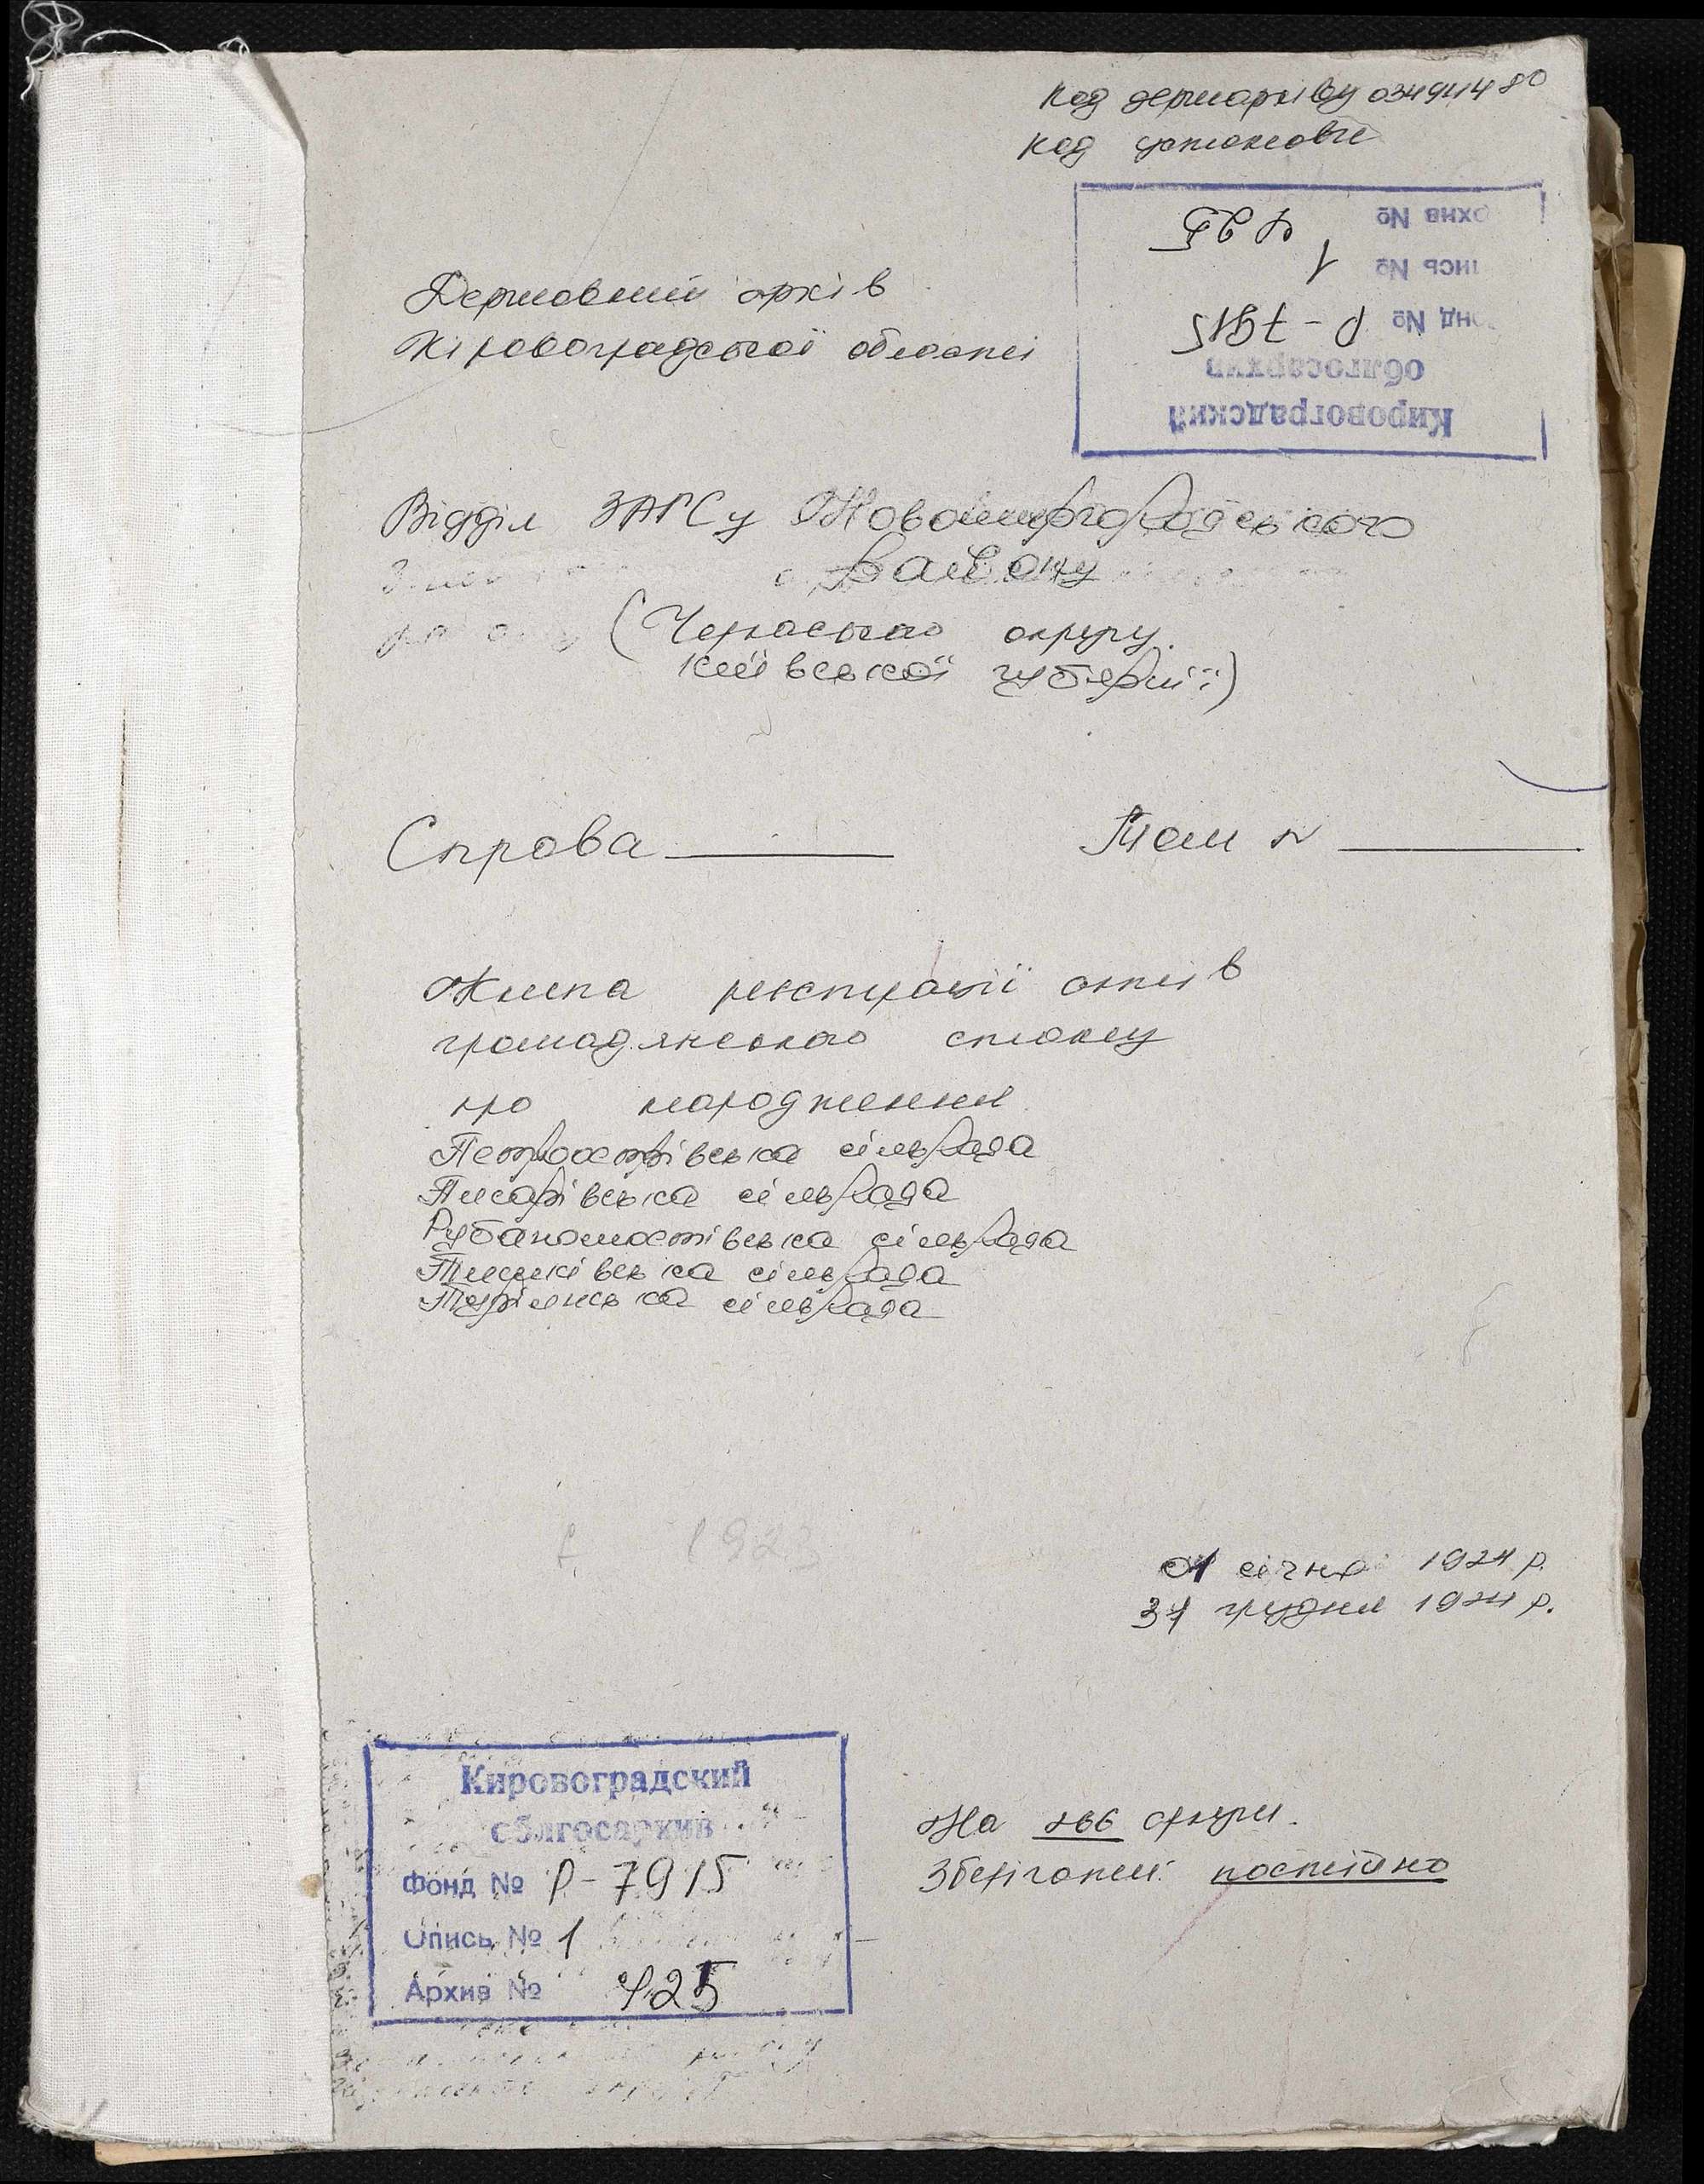 код держархіву 03494480
код установи
Кировоградский
облгосархив
Фонд № Р-7915
Опись № 1
Архив № 425
Державний архів
Кіровоградської області
Відділ ЗАГСу Новомиргородського
району
(Черкаського округу
Київської губернії)
Справа
Том №
Книга реєстрації актів
громадянського стану
про народження
Петроострівська сільрада
Писарівська сільрада
Рубаномостівська сільрада
Тишківська сільрада
Турійська сільрада
1923
01 січня 1924 р.
31 грудня 1924 р.
Кировоградский
облгосархив
Фонд № Р-7915
Опись № 1
Архив № 425
На 266 аркуш.
Зберігати: постійно